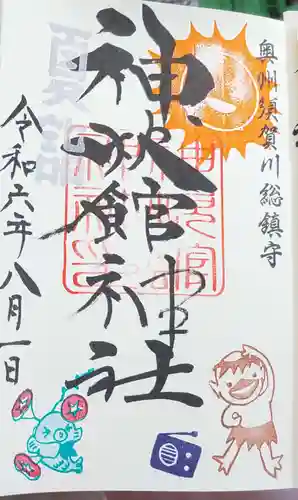 奥州須賀川総鎮守
神炊館神社
夏詣
令和六年八月一日